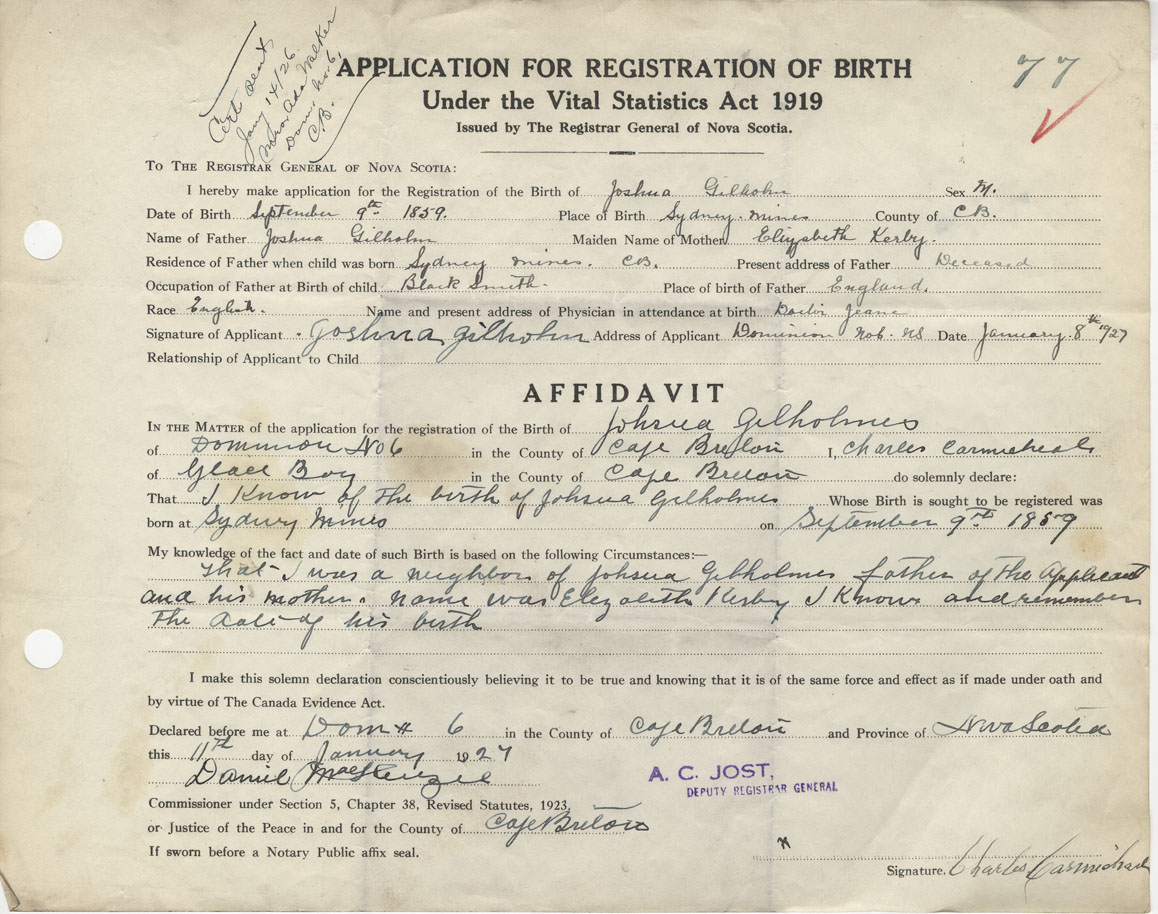 Cert sent
Jany 14/26
Mrs Ada Walker
Dom. No 6,
C.B.
77
APPLICATION FOR REGISTRATION OF BIRTH
Under the Vital Statistics Act 1919
Issued by The Registrar General of Nova Scotia.
To The Registrar General of Nova Scotia:
I hereby make application for the Registration of the Birth of Joshua Gilholm Sex M.
Date of Birth September 9th 1859. Place of Birth Sydney mines County of C.B.
Name of Father Joshua Gilholm Maiden Name of Mother Elizabeth Kerby.
Residence of Father when child was born Sydney mines. CB. Present address of Father Deceased
Occupation of Father at Birth of child Black Smith. Place of birth of Father England.
Race English. Name and present address of Physician in attendance at birth Doctor Jeans
Signature of Applicant Joshua Gilholm Address of Applicant Dominion No6. NS Date January 8th 1927
Relationship of Applicant to Child
AFFIDAVIT
In the Matter of the application for the registration of the Birth of Johsua Gilholmes
of Dominion No 6 in the County of Cape Breton I, Charles Carmicheal
of Glace Bay in the County of Cape Breton do solemnly declare:
That I Know of the birth of Johsua Gilholmes Whose Birth is sought to be registered was
born at Sydney Mines on September 9th 1859
My knowledge of the fact and date of such Birth is based on the following Circumstances:—
that I was a neighbor of Johsua Gilholmes father of the Applicant
and his mother. name was Elizabeth Kerby I Know and remember
the date of his birth
I make this solemn declaration conscientiously believing it to be true and knowing that it is of the same force and effect as if made under oath and
by virtue of The Canada Evidence Act.
Declared before me at Dom # 6 in the County of Cape Breton and Province of Nova Scotia
this 11th day of January 1927
Daniel MacKenzie
A. C. JOST,
DEPUTY REGISTRAR GENERAL
Commissioner under Section 5, Chapter 38, Revised Statutes, 1923,
or Justice of the Peace in and for the County of Cape Breton
If sworn before a Notary Public affix seal.
Signature. Charles Carmichael